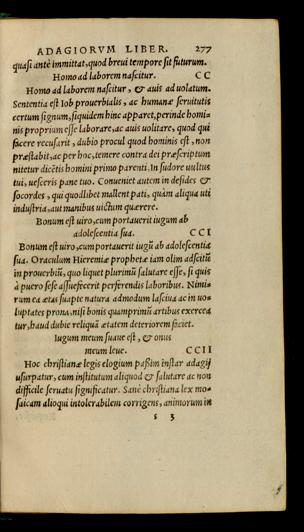 ADAGIORVM LIBER. 277
quasi antè immittat, quod breui tempore sit futurum.
Homo ad laborem nascitur. CC
Homo ad laborem nascitur, & auis ad uolatum.
Sententia est Iob prouerbialis, ac humanæ seruitutis
certum signum, siquidem hinc apparet, perinde homi-
nis proprium esse laborare, ac auis uolitare, quod qui
facere recusarit, dubio procul quod hominis est, non
præstabit, ac per hoc, temere contra dei præscriptum
nitetur dicentis homini primo parenti. In sudore uultus
tui, uesceris pane tuo. Conueniet autem in desides &
socordes, qui quodlibet mallent pati, quàm aliqua uti
industria, aut manibus uictum quærere.
Bonum est uiro, cum portauerit iugum ab
adolescentia sua. CCI
Bonum est uiro, cum portauerit iugū ab adolescentia
sua. Oraculum Hieremiæ prophetæ iam olim adscitū
in prouerbiū, quo liquet plurimū salutare esse, si quis
à puero sese assuefecerit perferendis laboribus. Nimi-
rum ea ætas suapte natura admodum lasciua ac in uo-
luptates prona, nisi bonis quamprimū artibus exercea
tur, haud dubie reliquā ætatem deteriorem faciet.
Iugum meum suaue est, & onus
meum leue. CCII
Hoc christianæ legis elogium passim instar adagij
usurpatur, cum institutum aliquod & salutare ac non
difficile seruatu significatur. Sanè christiana lex mo-
saicam alioqui intolerabilem corrigens, animorum in
s 3